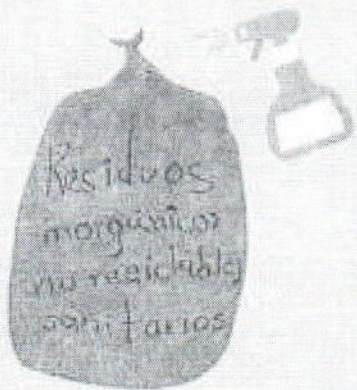 Residuos
inorgánicos
no reciclables
sanitarios